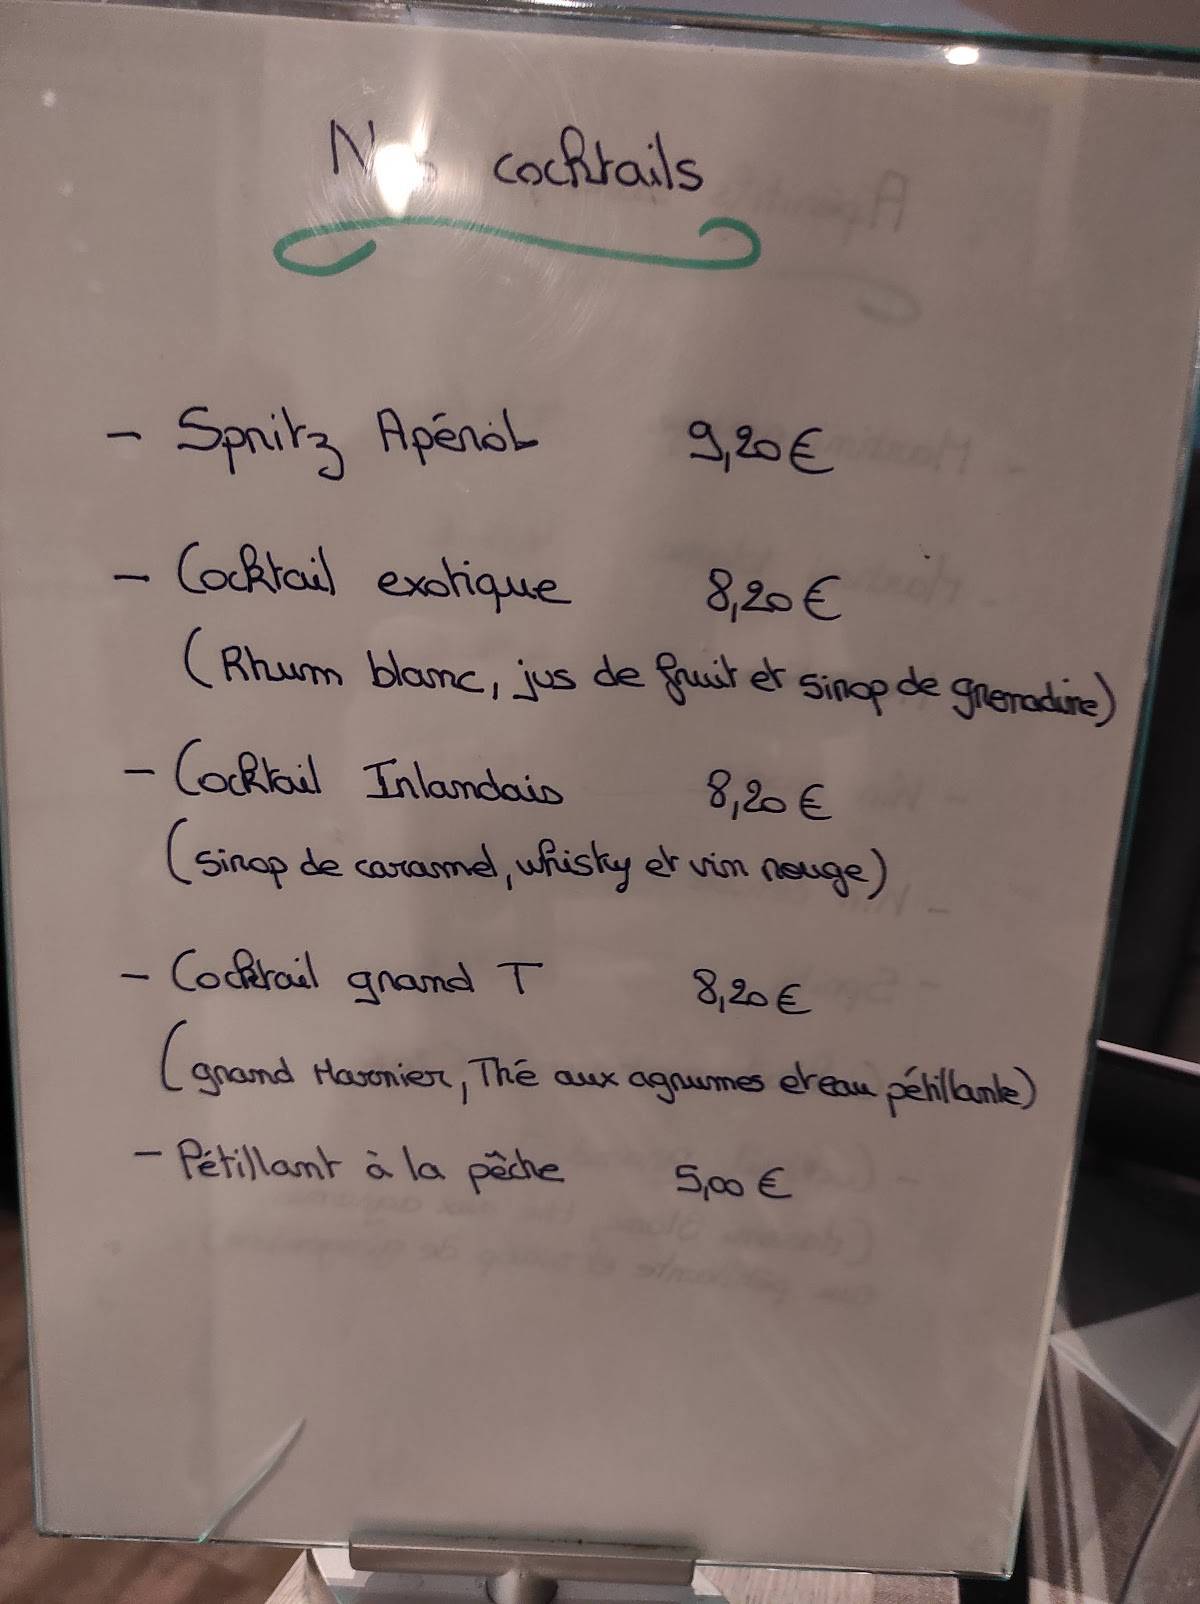 Nos cocktails
- Spritz Apérol 9,20€
- Cocktail exotique 8,20€
(Rhum blanc, jus de fruit et sirop de grenadine)
- Cocktail Irlandais 8,20€
(sirop de caramel, whisky et vin rouge)
- Cocktail grand T 8,20€
(grand Marnier, Thé aux agrumes et eau pétillante)
- Pétillant à la pêche 5,00€